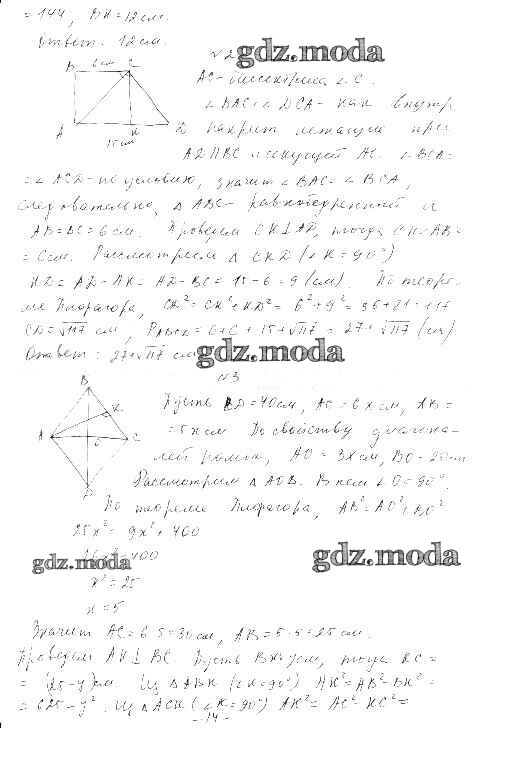 = 144, BH = 12 см.
Ответ. 12 см.
№2
gdz.moda
B 6 см C
A 15 см K D
AC - биссектриса ∠C.
∠BAC = ∠DCA - как внутр
накрест лежащие при
AD ∥ BC и секущей AC. ∠BCA =
= ∠ACD - по условию, значит ∠BAC = ∠BCA,
следовательно, △ABC - равнобедренный и
AB = BC = 6 см. Проведем CK⊥AD, тогда CK = AB =
= 6 см. Рассмотрим △CKD (∠K = 90°)
KD = AD - AK = AD - BC = 15 - 6 = 9 (см). По теоре-
ме Пифагора, CD² = CK² + KD² = 6² + 9² = 36 + 81 = 117
CD = √117 см, PABCD = 6 + 6 + 15 + √117 = 27 + √117 (см)
Ответ: 27 + √117 см
gdz.moda
№3
B
K
A O C
D
Пусть BD = 40 см, AC = 6x см, AB =
= 5x см По свойству диагона-
лей ромба, AO = 3x см, BO = 20 см
Рассмотрим △AOB. В нем ∠O = 90°.
По теореме Пифагора, AB² = AO² + BO²
25x² = 9x² + 400
16x² = 400
gdz.moda
gdz.moda
x² = 25
x = 5
Значит AC = 6·5 = 30 см, AB = 5·5 = 25 см.
Проведем AK⊥BC. Пусть BK = y см, тогда KC =
= (25 - y) см. Из △ABK (∠K = 90°) AK² = AB² - BK² =
= 625 - y². Из △ACK (∠K = 90°) AK² = AC² - KC² =
- 14 -